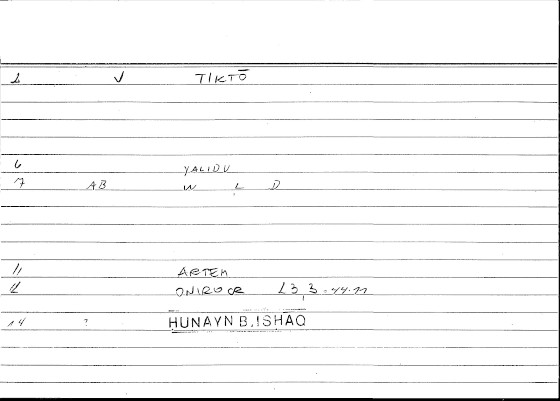 1 √ TIKTŌ
6 YALIDU
7 AB W L D
11 ARTEM
12 ONIROCR 23,3 = 44.11
14 ? HUNAYN B.ISHAQ